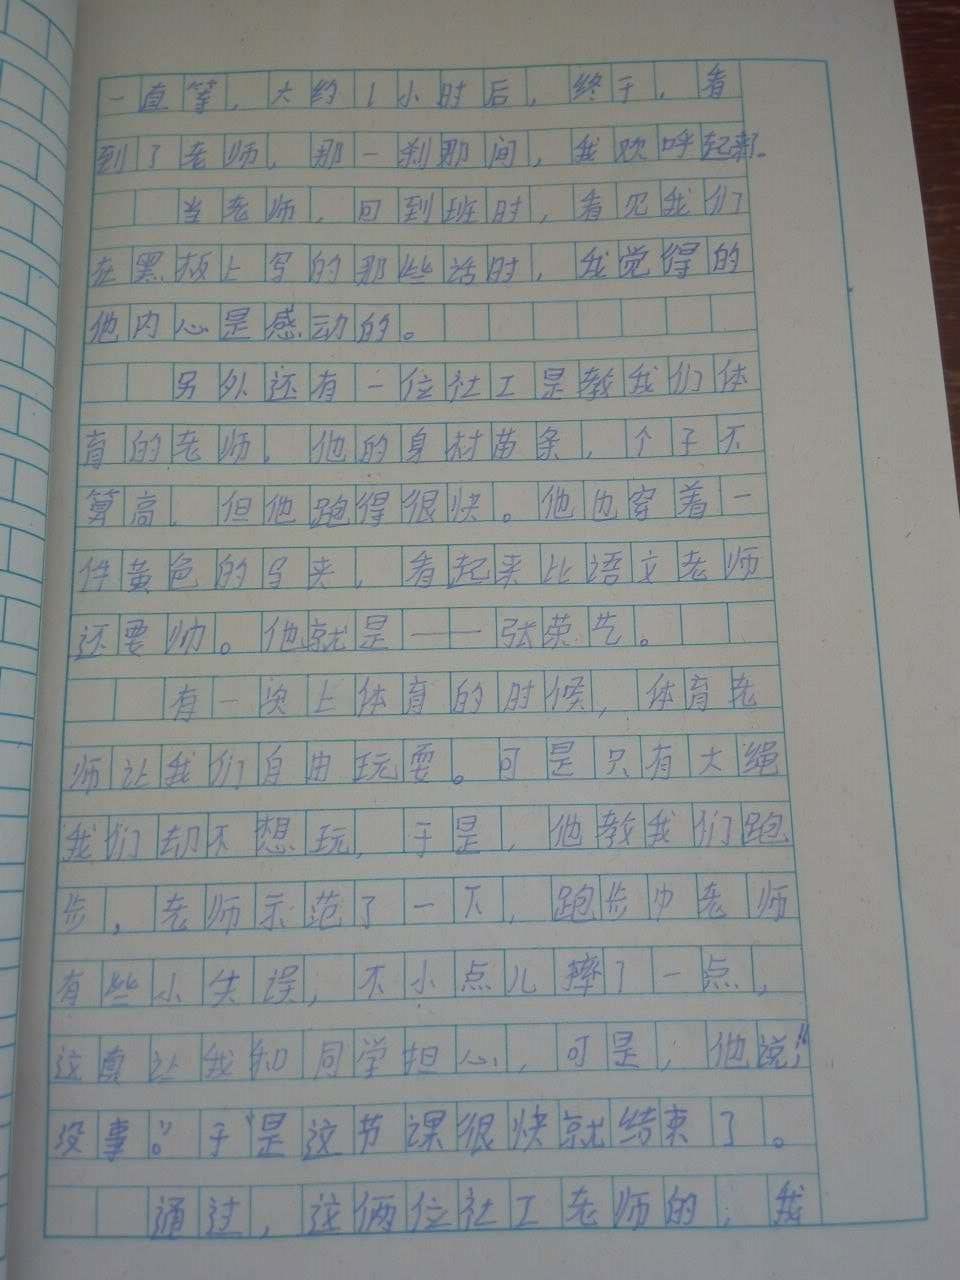 一直等，大约1小时后，终于，看
到了老师，那一刹那间，我欢呼起来。
当老师，回到班时，看见我们
在黑板上写的那些话时，我觉得的
他内心是感动的。
另外还有一位社工是教我们体
育的老师，他的身材苗条，个子不
算高，但他跑得很快。他也穿着一
件黄色的马夹，看起来比语文老师
还要帅。他就是——张荣艺。
有一次上体育的时候，体育老
师让我们自由玩耍。可是只有大绳
我们却不想玩，于是，他教我们跑
步，老师示范了一下，跑步中老师
有些小失误，不小点儿摔了一点，
这真让我和同学担心，可是，他说：“
没事。”于是这节课很快就结束了。
通过，这俩位社工老师的，我